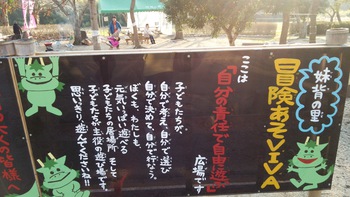 妹背の里
冒険あそVIVA
ここは
「自分の責任で自由遊び」
広場です
子どもたちが、
自分で考え、自分で選び
自分で決めて、自分で行なう。
ぼくも、わたしも、
元気いっぱい遊べる
子どもたちの居場所 そして
子どもたちが主役の遊び場です。
思いきり、遊んでくださいね!!
大人の皆様へ